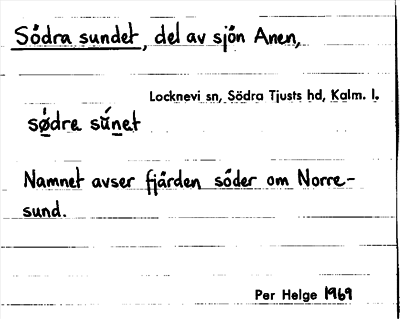 Södra sundet, del av sjön Anen,
Locknevi sn, Södra Tjusts hd, Kalm. l.
sø̀dre sù̱net
Namnet avser fjärden söder om Norre-
sund.
Per Helge 1969